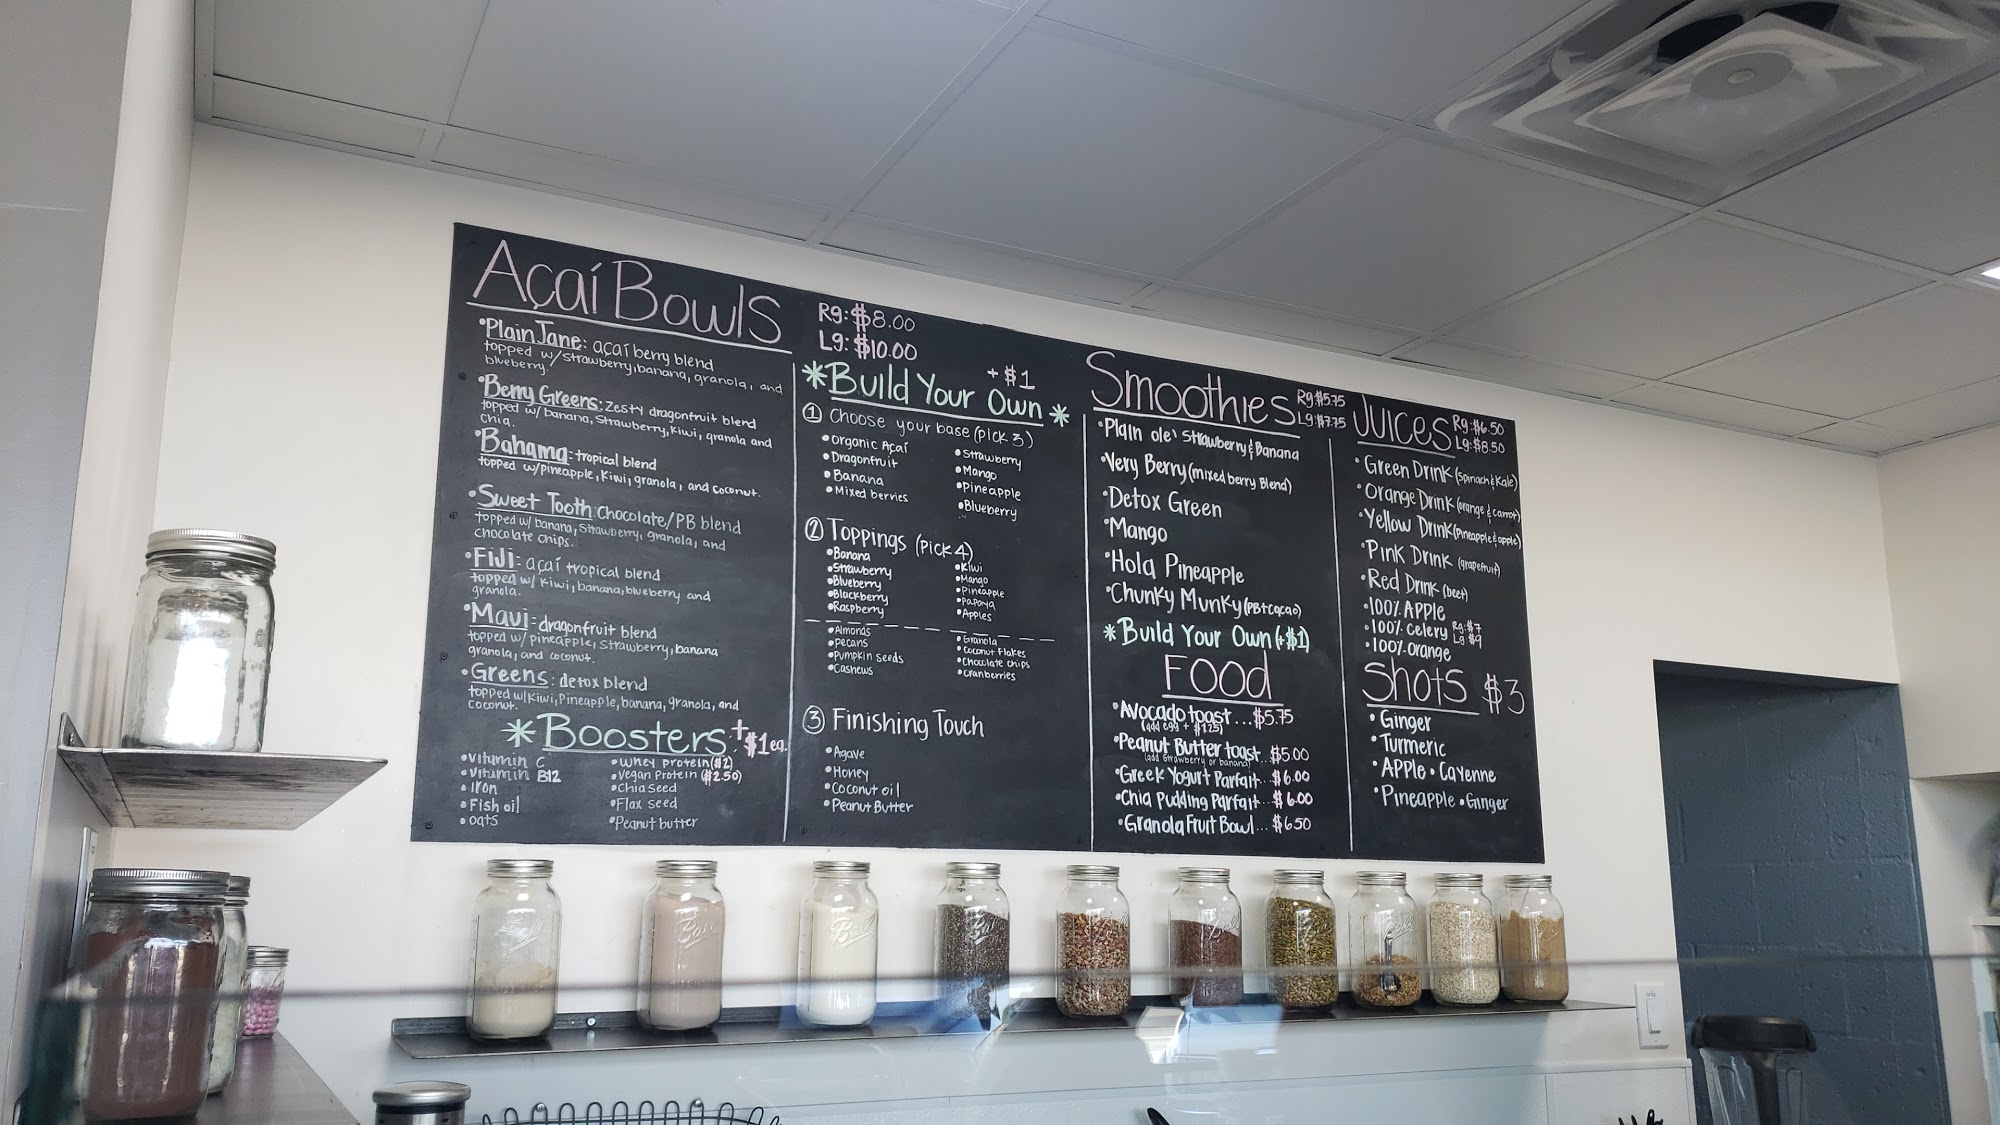 Açaí Bowls
Rg: $8.00
Lg: $10.00
•Plain Jane: açaí berry blend
topped w/ strawberry, banana, granola, and
blueberry.
•Berry Greens: Zesty dragonfruit blend
topped w/ banana, strawberry, kiwi, granola and
chia.
•Bahama: tropical blend
topped w/pineapple, kiwi, granola, and coconut.
•Sweet Tooth: Chocolate/PB blend
topped w/ banana, strawberry, granola, and
chocolate chips.
•Fiji: açaí tropical blend
topped w/ kiwi, banana, blueberry and
granola.
•Maui: dragonfruit blend
topped w/ pineapple, strawberry, banana
granola, and coconut.
•Greens: detox blend
topped w/ Kiwi, Pineapple, banana, granola, and
coconut.
*Boosters + $1 ea.
•Vitamin C
•Vitamin B12
•Iron
•Fish oil
•oats
•Whey protein ($2)
•Vegan Protein ($2.50)
•Chia Seed
•Flax seed
•Peanut butter
+ $1
*Build Your Own*
① Choose your base (pick 3)
•Organic Açaí
•Dragonfruit
•Banana
•Mixed berries
•Strawberry
•Mango
•Pineapple
•Blueberry
② Toppings (pick 4)
•Banana
•Strawberry
•Blueberry
•Blackberry
•Raspberry
•Kiwi
•Mango
•Pineapple
•Papaya
•Apples
•Almonds
•Pecans
•Pumpkin seeds
•Cashews
•Granola
•Coconut Flakes
•Chocolate chips
•Cranberries
③ Finishing Touch
•Agave
•Honey
•Coconut oil
•Peanut Butter
Smoothies
Rg: $5.75
Lg: $7.75
•Plain ole' Strawberry & Banana
•Very Berry (mixed berry Blend)
•Detox Green
•Mango
•Hola Pineapple
•Chunky Munky (PB+cacao)
*Build Your Own (+$1)
Food
•Avocado toast...$5.75
(add egg + $1.25)
•Peanut Butter toast $5.00
(add strawberry or banana)
•Greek Yogurt Parfait.. $6.00
•Chia Pudding Parfait.. $6.00
•Granola Fruit Bowl... $6.50
Juices
Rg: $6.50
Lg: $8.50
•Green Drink (Spinach & Kale)
•Orange Drink (orange & carrot)
•Yellow Drink (Pineapple & apple)
•Pink Drink (grapefruit)
•Red Drink (beet)
•100% Apple
•100% celery Rg: $7
Lg: $9
•100% orange
Shots $3
•Ginger
•Turmeric
•Apple • Cayenne
•Pineapple • Ginger
Ball
Ball
Ball
Ball